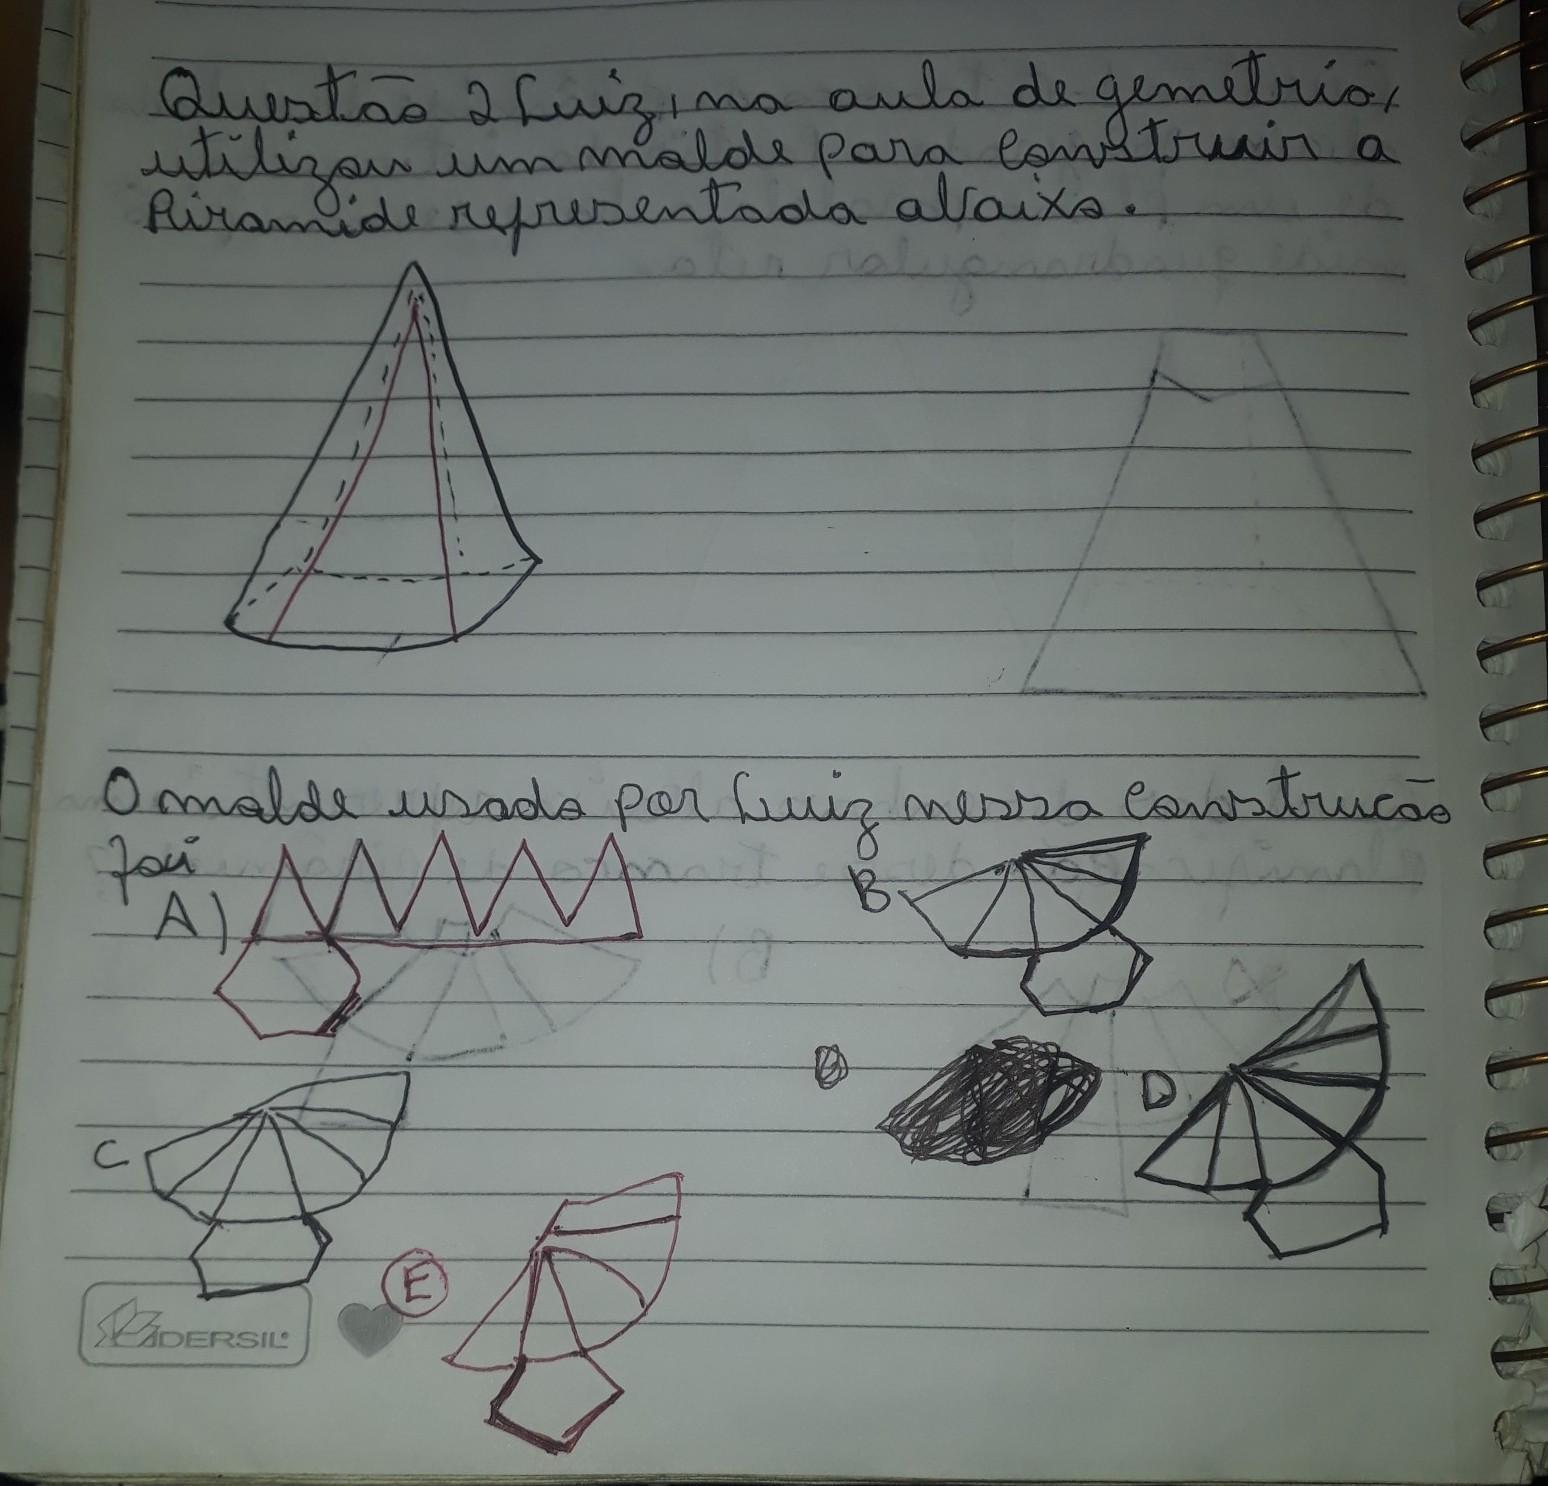 Questão 2 Luiz, na aula de gemetria,
utilizou um molde para construir a
Piramide representada abaixo.
O molde usado por Luiz nessa construcão
foi
A)
B
D
C
E
TIDERSIL